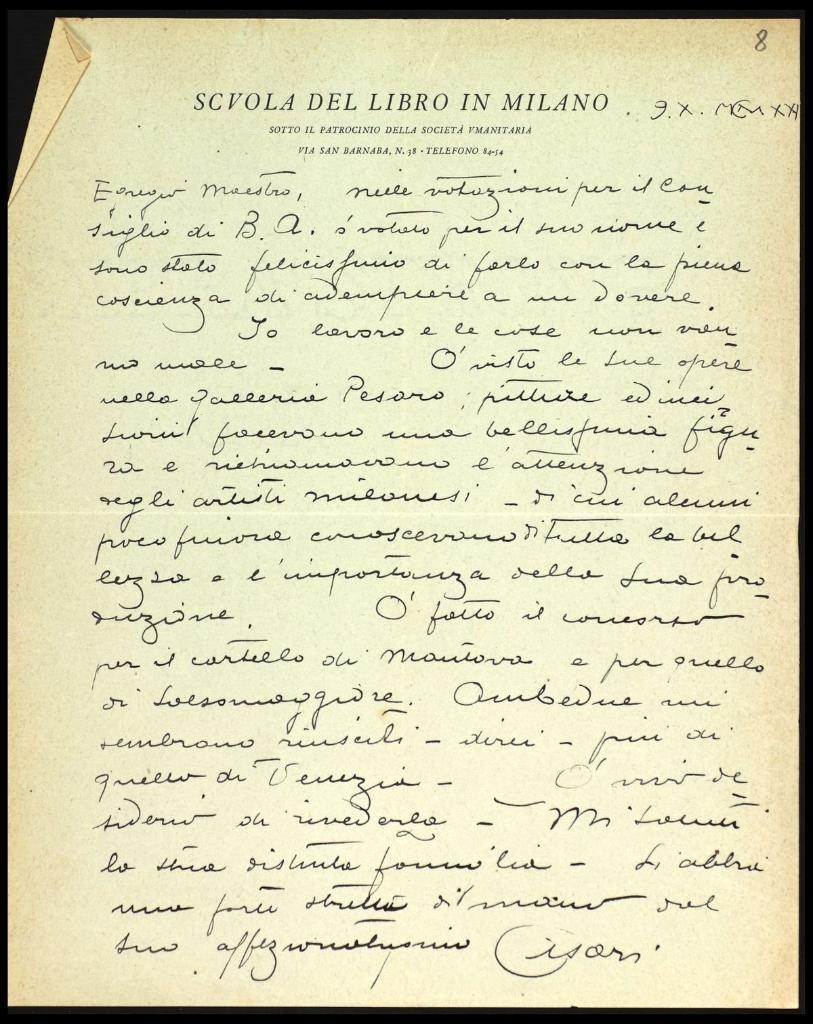 8
SCVOLA DEL LIBRO IN MILANO
9. X. MCMXXI
SOTTO IL PATROCINIO DELLA SOCIETÀ VMANITARIA
VIA SAN BARNABA, N. 38 · TELEFONO 84-54
Egregio Maestro, nelle votazioni per il Con
siglio di B. A. ò votato per il suo nome e
sono stato felicissimo di farlo con la piena
coscienza di adempiere a un dovere.
Io lavoro e le cose non van
no male – O' visto le sue opere
nella galleria Pesaro; pitture ed inci
sioni facevano una bellissima figu
ra e richiamavano l'attenzione
degli artisti milanesi – di cui alcuni
poco finora conoscevano di tutta la bel
lezza e l'importanza della sua pro
duzione. O' fatto il concorso
per il cartello di Mantova e per quello
di Salsomaggiore. Ambedue mi
sembrano riusciti – direi – più di
quello di Venezia – O' vivo de
siderio di rivederla – Mi saluti
la sua distinta famiglia – Si abbia
una forte stretta di mano dal
suo affezionatissimo Cisari